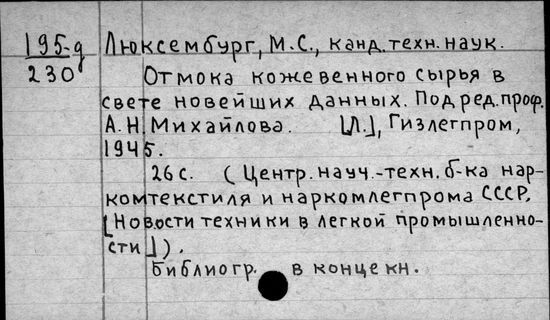 195-д
230
Люксембург, М.С., канд. техн. наук.
Отмока кожевенного сырья в
свете новейших данных. Под ред. проф.
А.Н. Михайлова. [Л.], Гизлегпром,
1945.
26 с. (Центр. науч.-техн. б-ка нар-
комтекстиля и наркомлегпрома СССР.
[Новости техники в легкой промышленно-
сти]).
Библиогр. в конце кн.